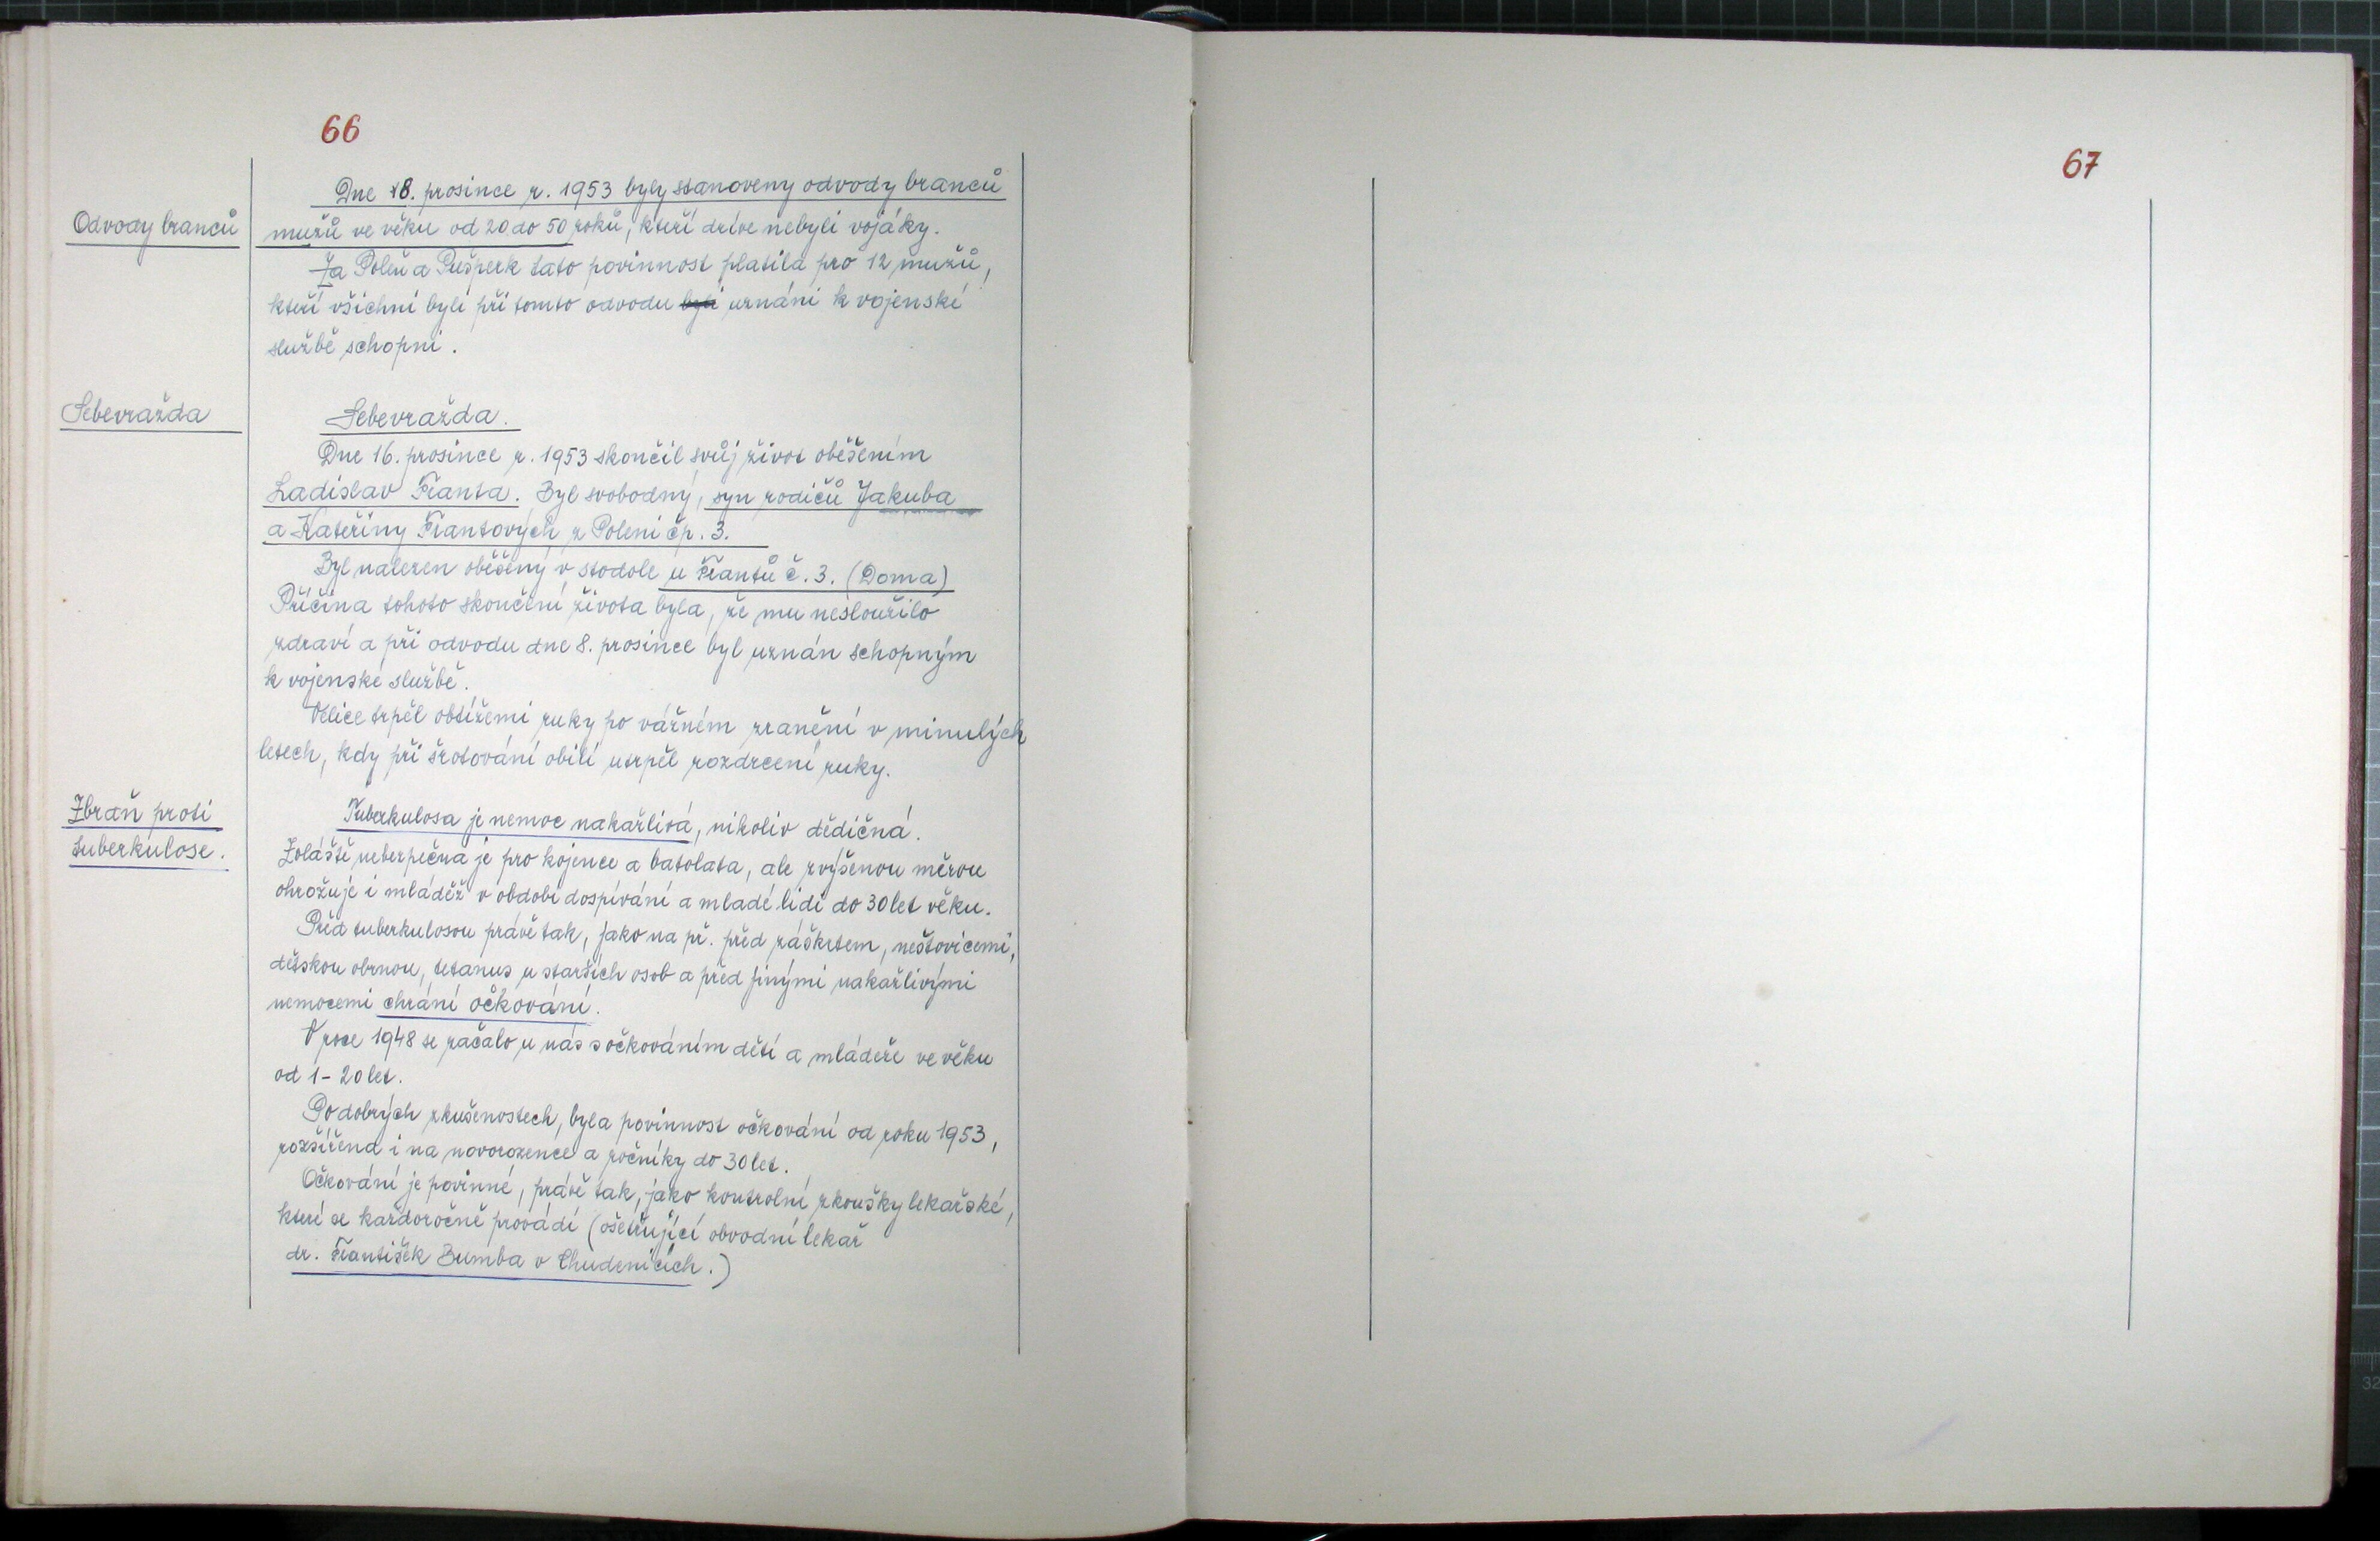 66
Dne 8. prosince r. 1953 byly stanoveny odvody branců
Odvody branců
mužů ve věku od 20 do 50 roků, kteří dríve nebyli vojáky.
Za Poleň a Pušperk tato povinnost platila pro 12 mužů,
kteří všichni byli při tomto odvodu byli uznáni k vojenské
službě schopni.
Sebevražda
Sebevražda.
Dne 16. prosince r. 1953 skončil svůj život oběšením
Ladislav Franta. Byl svobodný, syn rodičů Jakuba
a Kateřiny Frantových z Poleni čp. 3.
Byl nalezen oběšený v stodole u Frantů č. 3. (Doma)
Příčina tohoto skončení života byla, že mu nesloužilo
zdraví a při odvodu dne 8. prosince byl uznán schopným
k vojenské službě.
Velice trpěl obtížemi ruky po vážném zranění v minulých
letech, kdy při šrotování obilí utrpěl rozdrcení ruky.
Zbraň proti
tuberkulose.
Tuberkulosa je nemoc nakažlivá, nikoliv dědičná.
Zvláště nebezpečná je pro kojence a batolata, ale zvýšenou měrou
ohrožuje i mláděž v období dospívání a mladé lidi do 30 let věku.
Před tuberkulosou právě tak, jako na př. před záškrtem, neštovicemi,
dětskou obrnou, tetanus u starších osob a před jinými nakažlivými
nemocemi chrání očkování.
V roce 1948 se začalo u nás s očkováním dětí a mládeže ve věku
od 1 - 20 let.
Po dobrých zkušenostech, byla povinnost očkování od roku 1953,
rozšířena i na novorozence a ročníky do 30 let.
Očkování je povinné, právě tak, jako kontrolní zkoušky lekařské,
které se každoročně provádí (ošetřující obvodní lekař
dr. František Bumba v Chudenicích.)
67